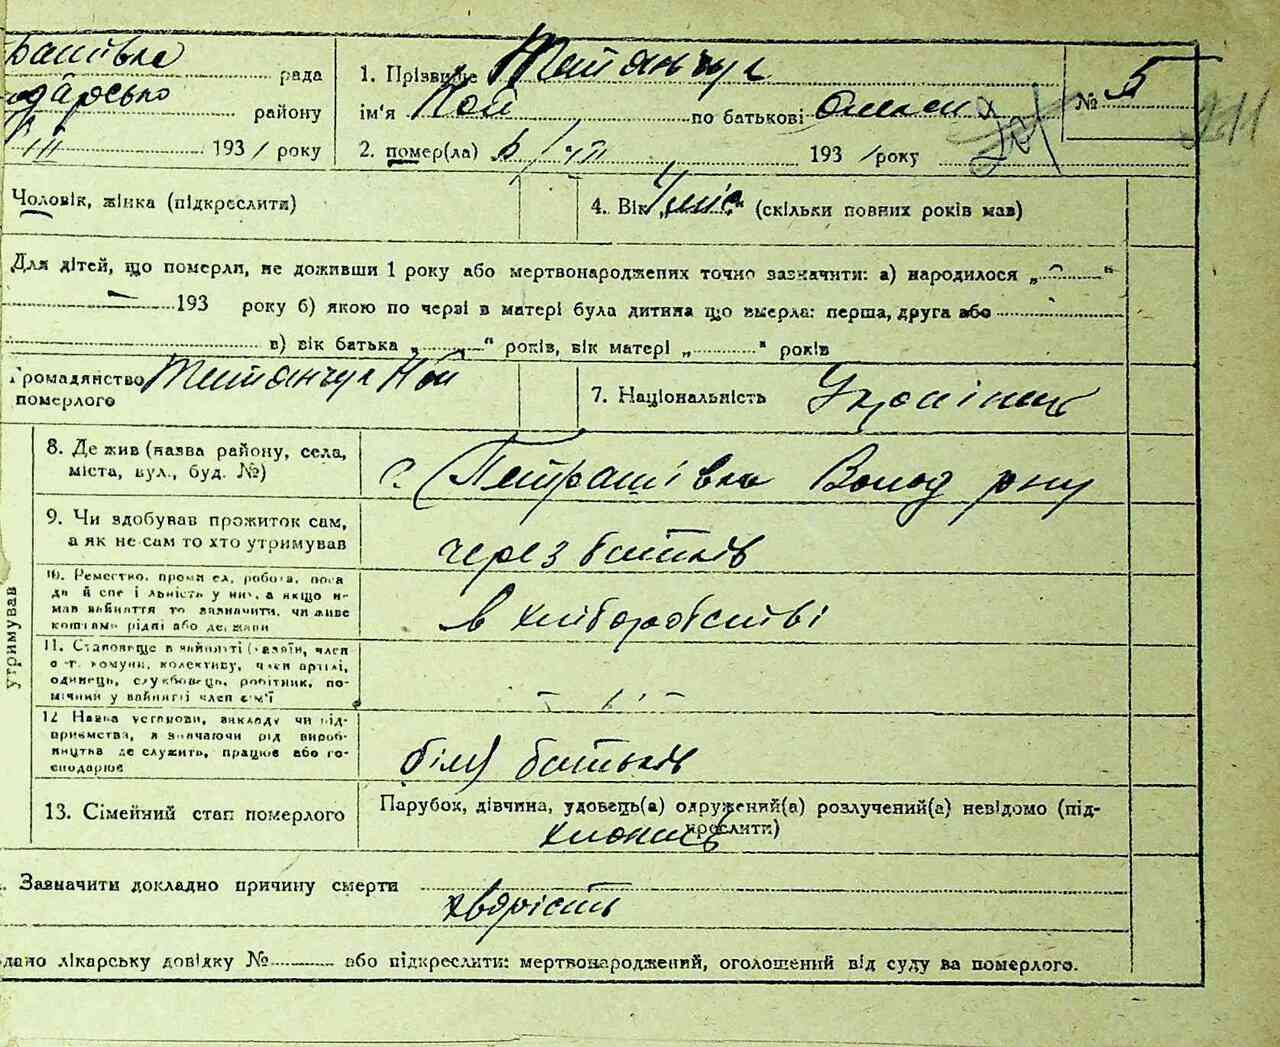 рашівка рада
одарсько району
III 1931 року
1. Прізвище Тетянчук
ім'я по батькові
№ 5
2. помер(ла) 6/VII 1931 року
Чоловік, жінка (підкреслити)
4. Вік „ міс “ (скільки повних років мав)
Для дітей, що померли, не доживши 1 року або мертвонароджених точно зазначити: а) народилося „ “
193 року б) якою по черзі в матері була дитина що вмерла: перша, друга або
в) вік батька „ “ років, вік матері „ “ років
Громадянство
померлого
Тетянчук
7. Національність Українець
8. Де жив (назва району, села,
міста, вул., буд. №)
с. Петрашівка Волод р-ну
9. Чи здобував прожиток сам,
а як не сам то хто утримував
через батьків
10. Ремество, промисел, робота, поса
да й спеціяльність у ним, а якщо н-
мав зайняття то зазначити, чи живе
коштами рідні або держави
в хліборобстві
11. Становище в зайнятті (хазяїн, член
с-г. комуни, колективу, член артілі,
одинець, службовець, робітник, по-
мічний у зайнятті член сім'ї
12 Назва установи, закладу чи під-
приємства, зазначаючи рід вироб-
ництва де служить, працює або го-
сподарює
біля батьків
утримував
13. Сімейний стан померлого
Парубок, дівчина, удовець(а) одружений(а) розлучений(а) невідомо (під-
креслити)
хлопець
. Зазначити докладно причину смерти
хворість
дано лікарську довідку № або підкреслити: мертвонароджений, оголошений від суду за померлого.